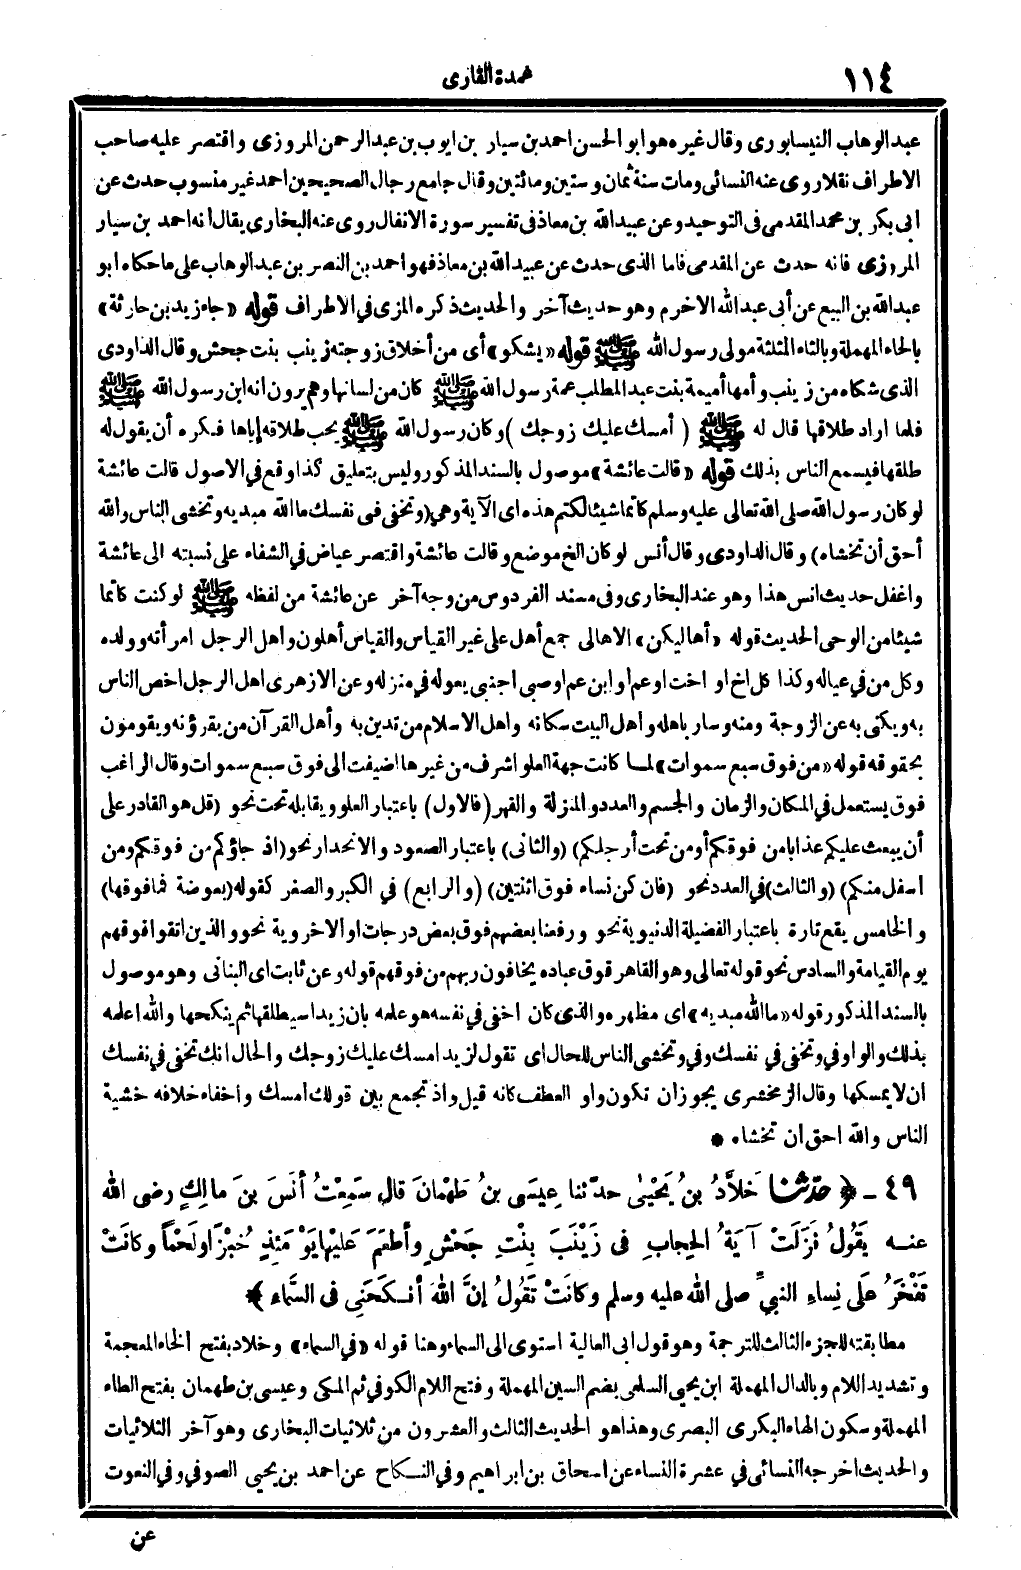 ١١٤
عمدة القارى
عبد الوهاب النيسابورى وقال غيره هو ابو الحسن احمد بن سيار بن ايوب بن عبد الرحمن المروزى واقتصر عليه صاحب
الاطراف نقلا روى عنه النسائى ومات سنة ثمان وستين ومائتين وقال جامع رجال الصحيحين احمد غير منسوب حدث عن
ابى بكر بن محمد المقدمى فى التوحيد وعن عبيد الله بن معاذ فى تفسير سورة الانفال روى عنه البخارى يقال أنه احمد بن سيار
المروزى فانه حدث عن المقدمى فاما الذى حدث عن عبيد الله بن معاذ فهو احمد بن النصر بن عبد الوهاب على ما حكاه ابو
عبد الله بن البيع عن أبى عبد الله الاخرم وهو حديث آخر والحديث ذكره المزى في الاطراف قوله «جاء زيد بن حارثة»
بالحاء المهملة وبالثاء المثلثة مولى رسول الله ﷺ قوله «يشكو» أى من أخلاق زوجته زينب بنت جحش وقال الداودى
الذى شكاه من زينب وأمها أميمة بنت عبد المطلب عمة رسول الله ﷺ كان من لسانها وهم يرون انه ابن رسول الله ﷺ
فلما اراد طلاقها قال له ﷺ ( أمسك عليك زوجك ) وكان رسول الله ﷺ يحب طلاقه إياها فكره أن يقول له
طلقها فيسمع الناس بذلك قوله «قالت عائشة» موصول بالسند المذكور وليس بتعليق كذا وقع في الاصول قالت عائشة
لو كان رسول الله صلى الله تعالى عليه وسلم كاتما شيئا لكتم هذه اى الآية وهي (وتخفى فى نفسك ما الله مبديه وتخشى الناس والله
أحق أن تخشاه) وقال الداودى وقال أنس لو كان الخ موضع وقالت عائشة واقتصر عياض في الشفاء على نسبته الى عائشة
واغفل حديث انس هذا وهو عند البخارى وفى مسند الفردوس من وجه آخر عن عائشة من لفظه ﷺ لو كنت كاتما
شيئا من الوحى الحديث قوله «أهاليكن» الاهالى جمع أهل على غير القياس والقياس أهلون واهل الرجل امرأته وولده
وكل من في عياله وكذا كل اخ او اخت او عم او ابن عم او صبى اجنبى يعوله في منزله وعن الازهرى اهل الرجل اخص الناس
به ويكنى به عن الزوجة ومنه وسار باهله واهل البيت سكانه واهل الاسلام من تدين به وأهل القرآن من يقرؤنه ويقومون
بحقوقه قوله «من فوق سبع سموات» لمـا كانت جهة العلو اشرف من غيرها اضيفت الى فوق سبع سموات وقال الراغب
فوق يستعمل في المكان والزمان والجسم والعدد والمنزلة والقهر (فالاول) باعتبار العلو ويقابله تحت نحو (قل هو القادر على
أن يبعث عليكم عذابا من فوقكم أو من تحت أرجلكم) (والثانى) باعتبار الصعود والانحدار نحو (اذ جاؤكم من فوقكم ومن
اسفل منكم) (والثالث) في العدد نحو (فان كن نساء فوق اثنتين) (والرابع) في الكبر والصغر كقوله (بعوضة فما فوقها)
والخامس يقع تارة باعتبار الفضيلة الدنيوية نحو ورفعنا بعضهم فوق بعض درجات او الاخروية نحو والذين اتقوا فوقهم
يوم القيامة والسادس نحو قوله تعالى وهو القاهر فوق عباده يخافون ربهم من فوقهم قوله وعن ثابت اى البنانى وهو موصول
بالسند المذكور قوله «ما الله مبديه» اى مظهره والذى كان اخفى في نفسه هو علمه بان زيدا سيطلقها ثم ينكحها والله اعلمه
بذلك والواو في وتخفى في نفسك وفي وتخشى الناس للحال اى تقول لزيد امسك عليك زوجك والحال انك تخفى في نفسك
ان لا يمسكها وقال الزمخشرى يجوز ان تكون واو العطف كانه قيل واذ تجمع بين قولك امسك واخفاء خلافه خشية
الناس والله احق ان تخشاه *
٤٩ - ﴿ حدثنا خَلاَّدُ بنُ يَحْيَىٰ حدّثنا عِيسَى بنُ طَهْمَانَ قال سَمِعْتُ أنَسَ بنَ مالِكٍ رضى الله
عنـه يَقُولُ نَزَلَتْ آيَةُ الحِجابِ فى زَيْنَبَ بِنْتِ جَحْشٍ وأطْعَمَ عَلَيْها يَوْمَئِذٍ خُبْزًا ولَحْمًا وكانَتْ
تَفْخَرُ عَلَى نِساءِ النبيِّ صلى الله عليه وسلم وكانَتْ تَقُولُ إنَّ اللهَ أنْـكَحَنِى فى السَّماء ﴾
مطابقته للجزء الثالث للترجمة وهو قول ابى العالية استوى الى السماء وهنا قوله «في السماء» وخلاد بفتح الخاء المعجمة
وتشديد اللام وبالدال المهملة ابن يحيى السلمى بضم السين المهملة وفتح اللام الكوفي ثم المكى وعيسى بن طهمان بفتح الطاء
المهملة وسكون الهاء البكرى البصرى وهذا هو الحديث الثالث والعشرون من ثلاثيات البخارى وهو آخر الثلاثيات
والحديث اخرجه النسائى في عشرة النساء عن اسحاق بن ابراهيم وفي النـكاح عن احمد بن يحيى الصوفي وفي النعوت
عن